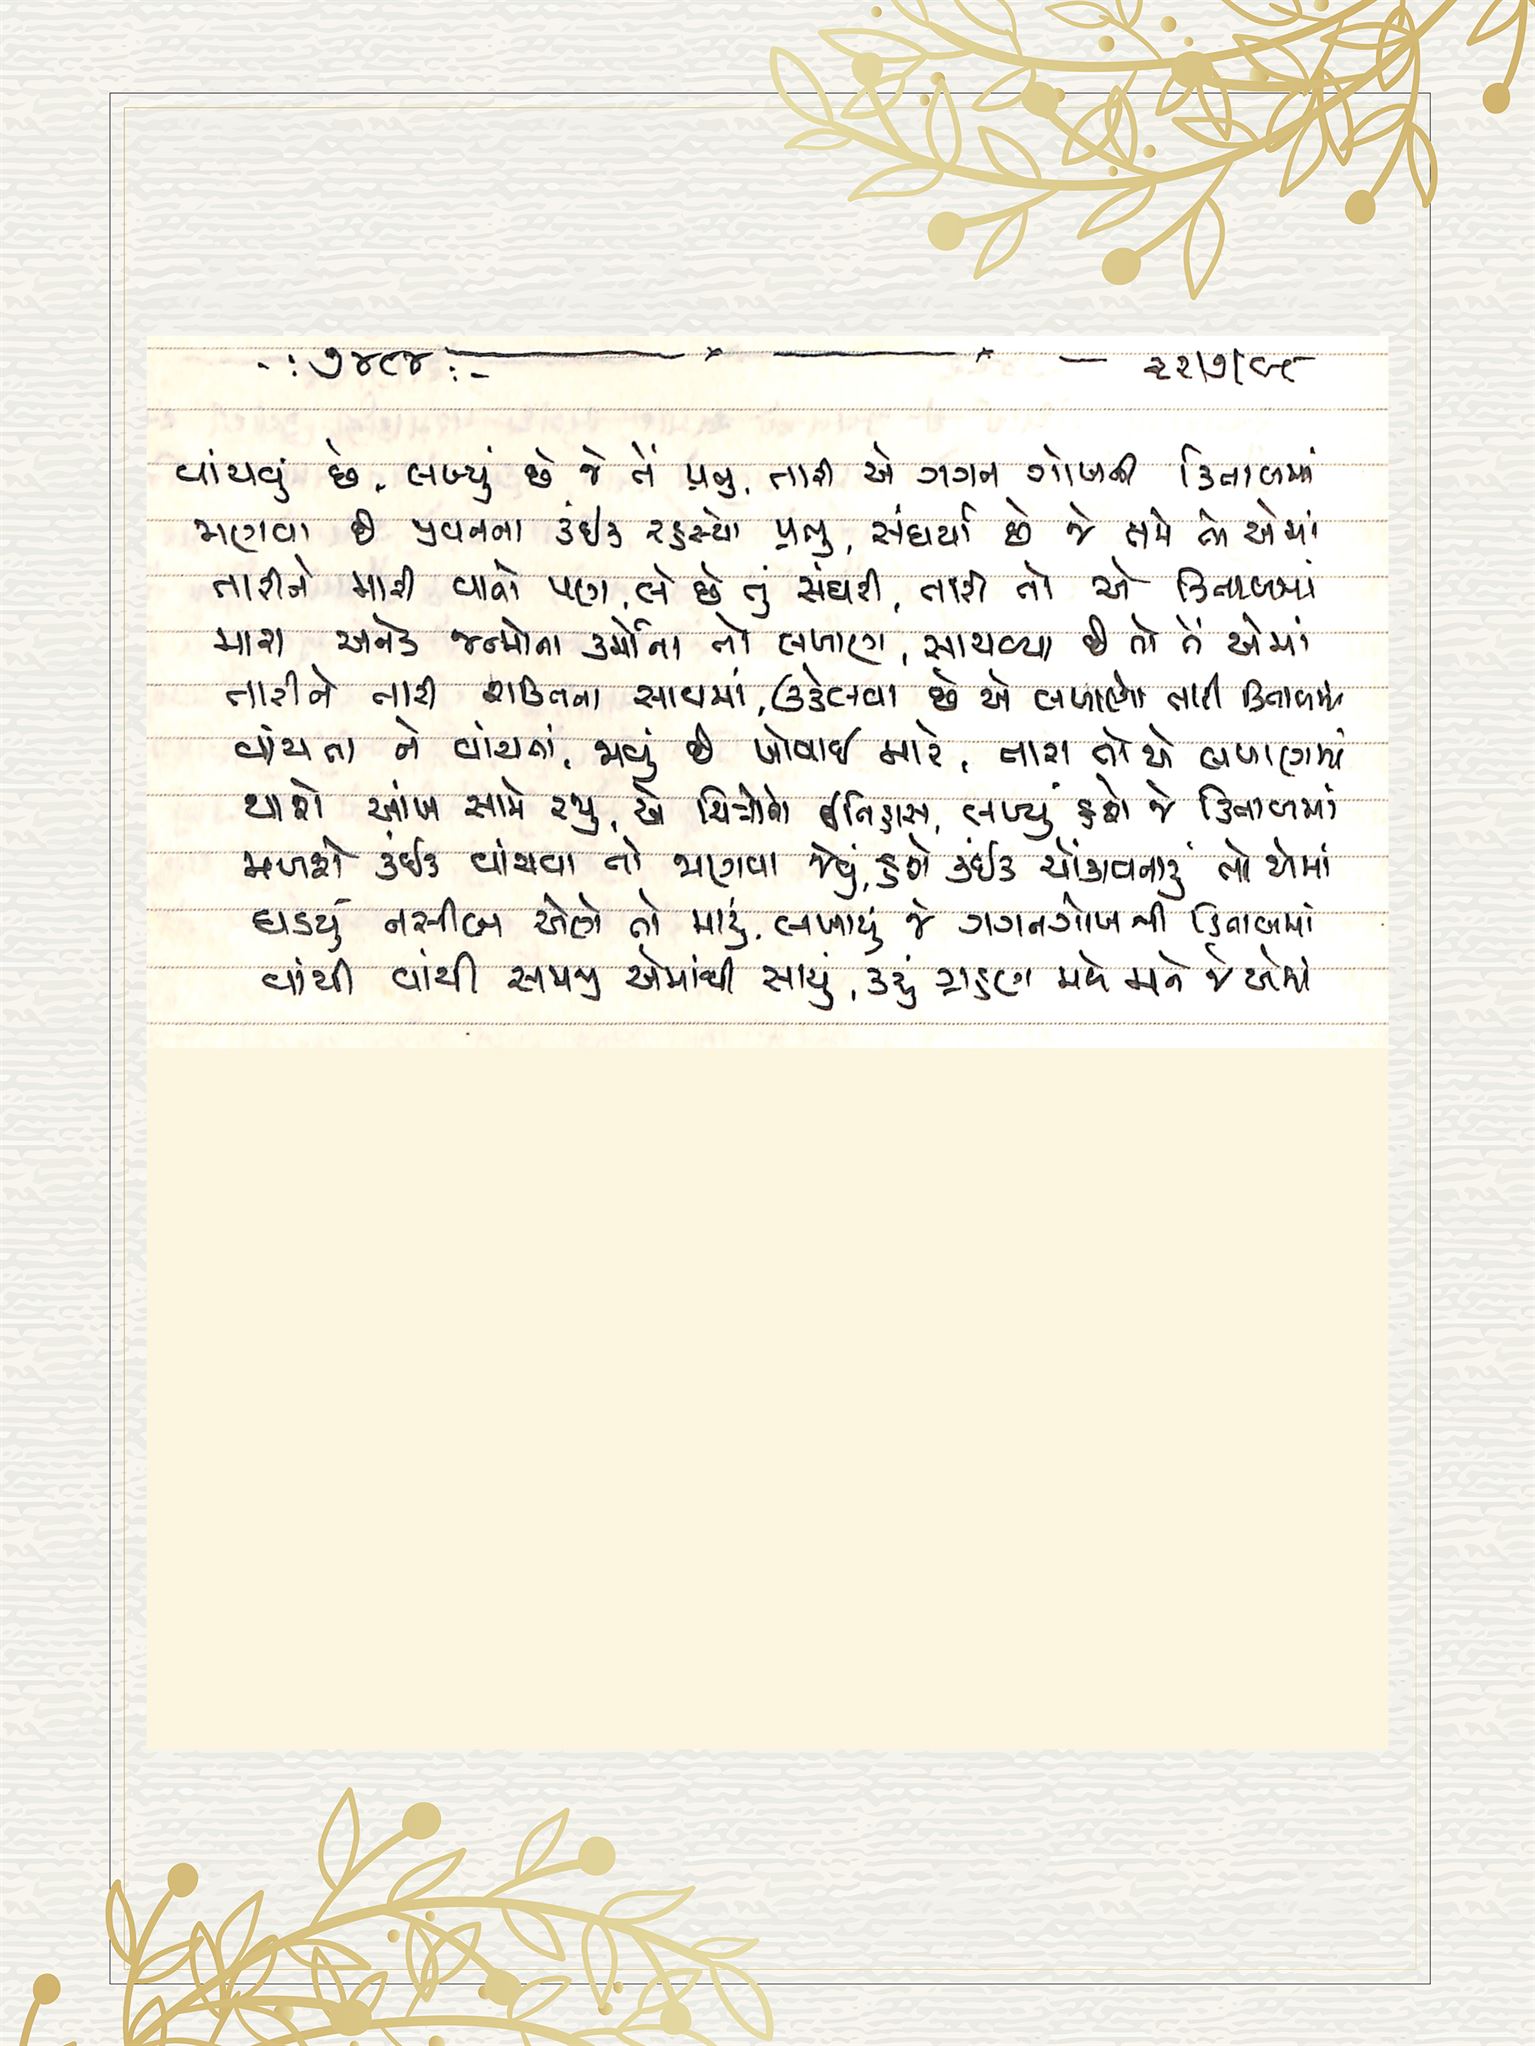 -: ૭૪૮૪ :- ૨૨/૭/૯૮
વાંચવું છે, લખ્યું છે જે તેં પ્રભુ, તારી એ ગગન ગોખની કિતાબમાં
ભણવા છે જીવનના કંઈક રહસ્યો પ્રભુ, સંઘર્યા છે જે તમે તો એમાં
તારીને મારી વાતો પણ, લે છે તું સંઘરી, તારી તો એ કિતાબમાં
મારા અનેક જન્મોના કર્મોના તો લખાણ, સાચવ્યા છે તો તેં એમાં
તારીને તારી શક્તિના સાથમાં, ઉકેલવા છે એ લખાણો તારી કિતાબમાં
વાંચતા ને વાંચતાં, જાવું છે ખોવાઈ મારે, તારા તો એ લખાણમાં
થાશે આંખ સામે રજુ, એ ચિત્રોનો ઈતિહાસ, લખ્યું હશે જે કિતાબમાં
મળશે કંઈક વાંચવા તો ભણવા જેવું, હશે કંઈક ચોંકાવનારું તો એમાં
ઘડયું નસીબ એણે તો મારું, લખાયું જે ગગનગોખની કિતાબમાં
વાંચી વાંચી સમજી એમાંથી સાચું, કરું ગ્રહણ મળે મને જે એમાં